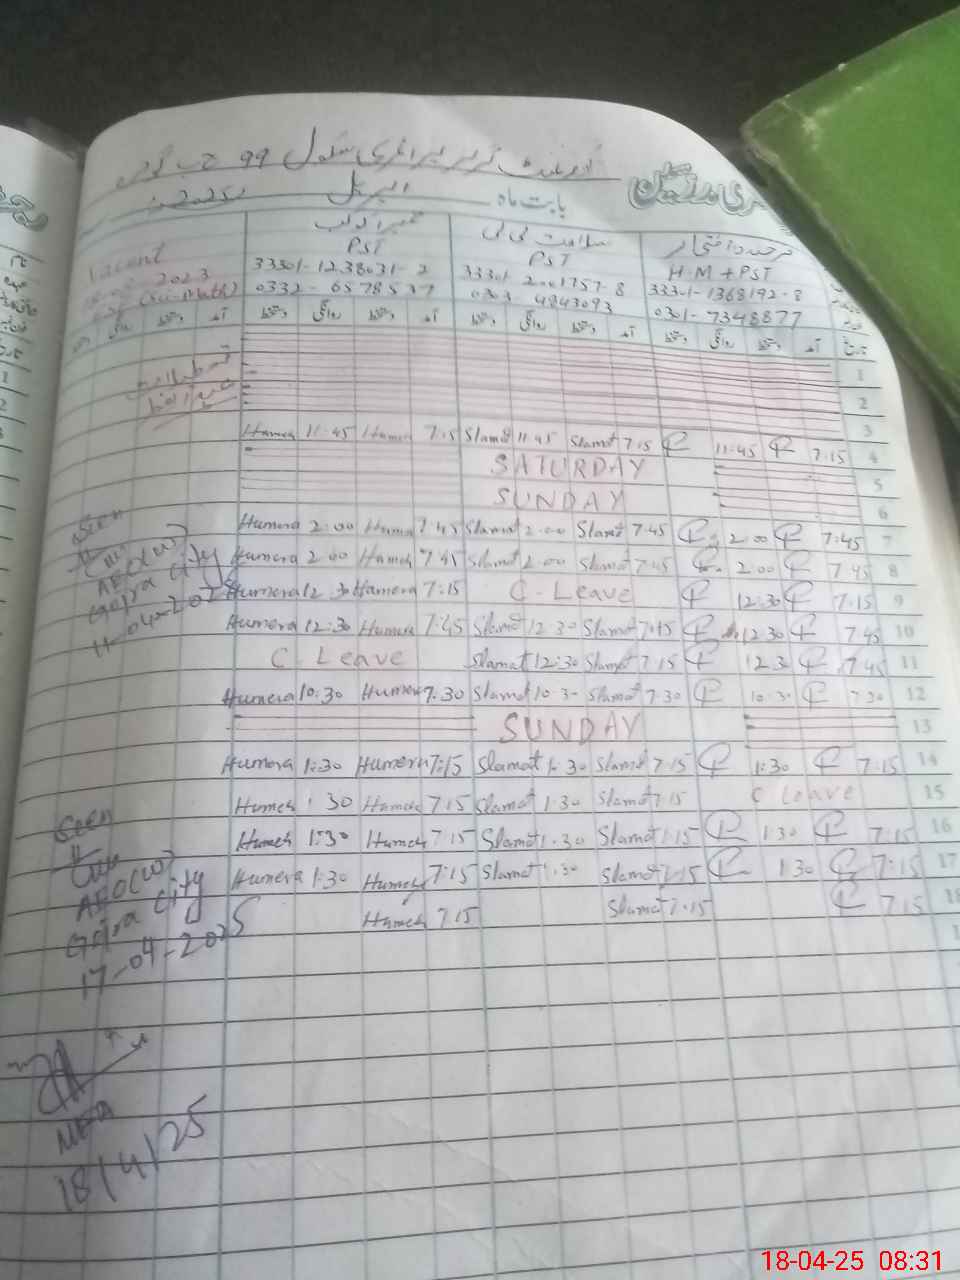 گورنمنٹ گرلز پرائمری سکول 99 ج ب گوجرہ
بابت ماہ اپریل 2025
حمیرا کوکب
PST
33301-1238031-2
0332-6578537
سلامت بی بی
PST
33301-2001757-8
0303-4843093
H.M + PST
33301-1368192-8
0301-7348877
Vacent
2023
(Sci-Math)
آمد
دستخط
روانگی
دستخط
آمد
دستخط
روانگی
دستخط
آمد
دستخط
روانگی
دستخط
تاریخ
1
2
3
Humera 11:45 Humera 7:15 Slamat 11:45 Slamat 7:15 11:45 7:15 4
SATURDAY 5
SUNDAY 6
Humera 2:00 Humera 7:45 Slamat 2:00 Slamat 7:45 2:00 7:45 7
Humera 2:00 Humera 7:45 Slamat 2:00 Slamat 7:45 2:00 7:45 8
Humera 12:30 Humera 7:15 C-Leave 12:30 7:15 9
Humera 12:30 Humera 7:45 Slamat 12:30 Slamat 7:15 12:30 7:45 10
C. Leave Slamat 12:30 Slamat 7:15 12:30 7:45 11
Humera 10:30 Humera 7:30 Slamat 10:30 Slamat 7:30 10:30 7:30 12
SUNDAY 13
Humera 1:30 Humera 7:15 Slamat 1:30 Slamat 7:15 1:30 7:15 14
Humera 1:30 Humera 7:15 Slamat 1:30 Slamat 7:15 C Leave 15
Humera 1:30 Humera 7:15 Slamat 1:30 Slamat 7:15 1:30 7:15 16
Humera 1:30 Humera 7:15 Slamat 1:30 Slamat 7:15 1:30 7:15 17
Humera 7:15 Slamat 7:15 7:15 18
Seen
AEO(W)
Gojra City
11-04-2025
Seen
AEO(W)
Gojra City
17-04-2025
MEA
18/4/25
18-04-25 08:31